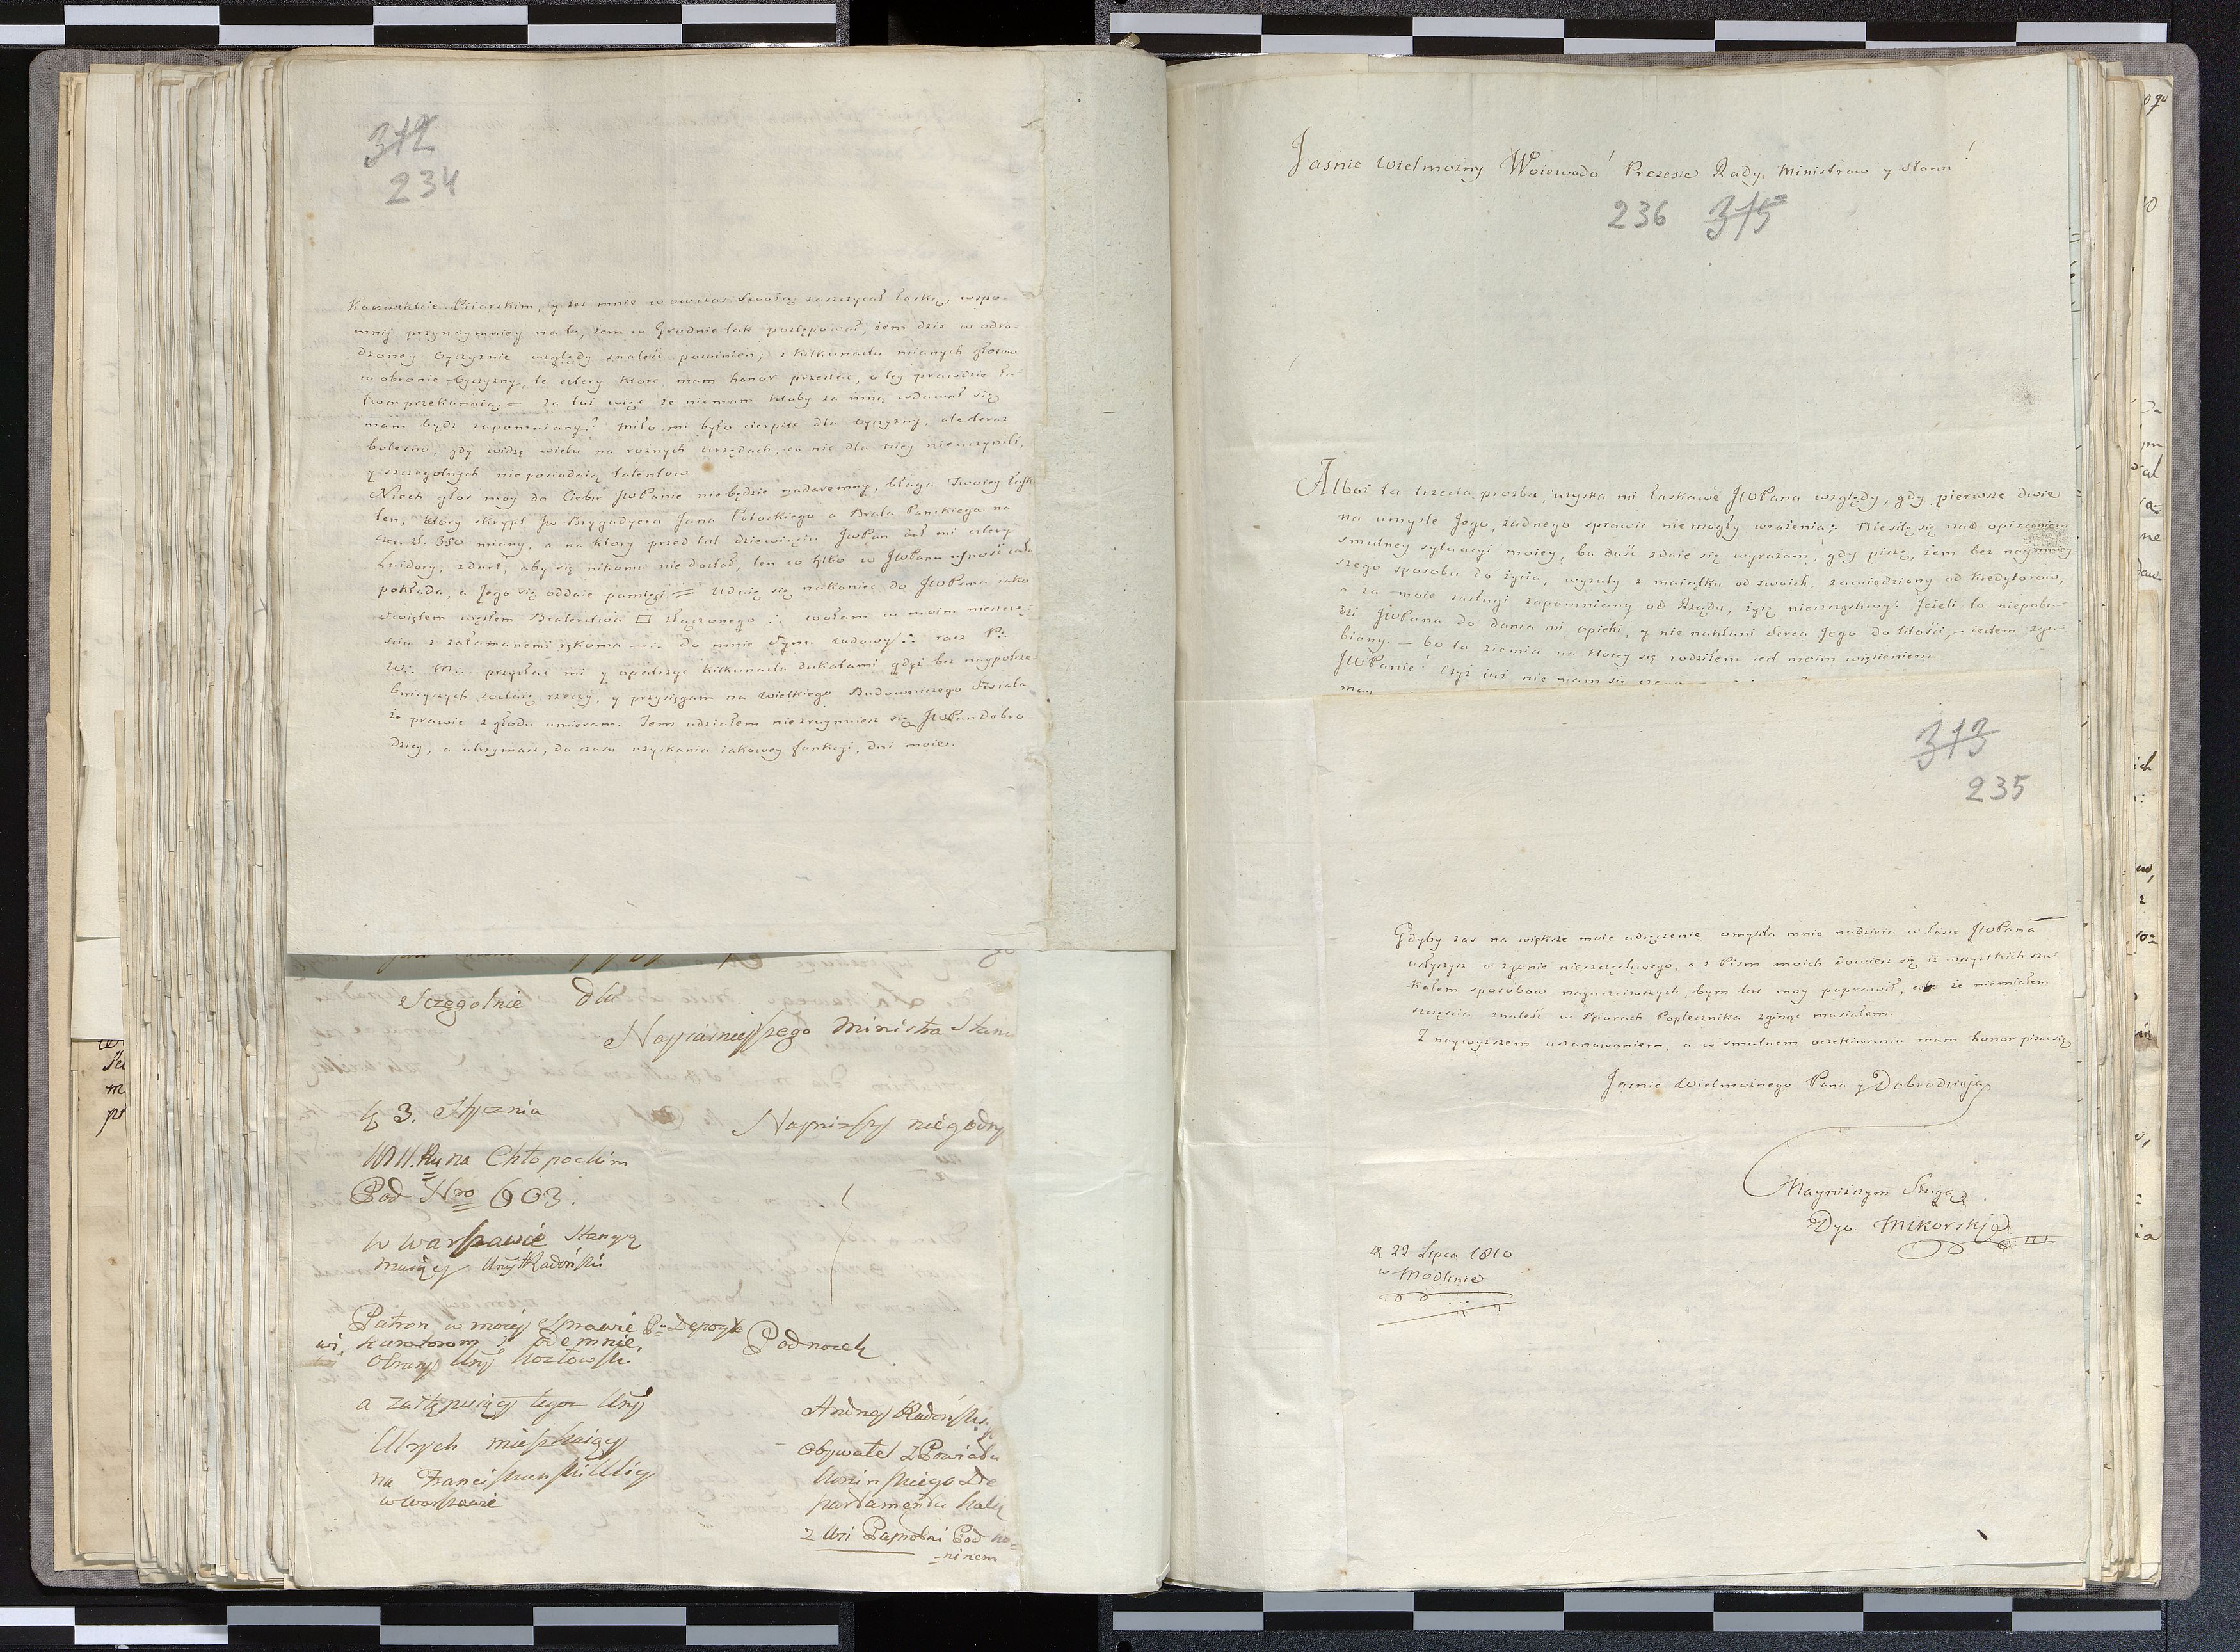 312
234
Konwikcie Piiarskim, y żeś mnie wowczas Swoią zaszczycał łaską, wspo-
mnij przynaymniey na to, żem w Grodnie tak postępował, żem dziś w odro-
dzoney Oyczyznie względy znaleść powinien; z kilkunastu mianych głosow
w obronie Oyczyzny, te cztery ktore mam honor przesłać, o tey prawdzie ła-
two przekonaią = za toż więc że niemam ktoby za mną wdawał się
mam bydz zapomniany? Miło mi było cierpieć dla Oyczyzny, ale teraz
bolesno, gdy widzę wielu na rożnych urzędach, co nic dla niey nieuczynili,
y szczegolnych nieposiadaią talentow.
Niech głos moy do Ciebie JWPanie niebędzie nadaremny, błaga Twoiey łaski
ten, ktory skrypt Jw Brygadyera Jana Potockiego a Brata Panskiego na
Czer. Zł. 350 miany, a na ktory przed lat dziewięciu JWPan dał mi cztery
Luidory, zdarł, aby się nikomu nie dostał, ten co tylko w JWPanu ufność całą
pokłada, a Jego się oddaie pamięci. = Udaię się nakoniec do JWPana iako
Swiętem węzłem Braterstwa □ złączonego ∴ wołam w moim nieszczę-
sciu z załamanemi rękoma — ∴ do mnie Syna wdowy ∴ racz P∴
W∴ M∴ przysłać mi y opatrzyć kilkunastu dukatami gdyż bez naypotrze-
bnieyszych zostaię rzeczy, y przysięgam na Wielkiego Budowniczego Świata
że prawie z głodu umieram. Tem udziałem niezruynuiesz się JWPan Dobro-
dziey, a utrzymasz, do czasu uzyskania iakowey funkcyi, dni moie.
Sczegolnie dla
Nayiasnieyszego Ministra Stanu
d. 3. Stycznia
Nayniższy niegodny
Pod Nro 603.
w Warszawie Stancyą
maiący Radoński
Patron w mojej Sprawie
obrany Kozłowski
Podnożek
a zastępuiący tegoż
Andrzej Radoński
Ulrych mieszkaiący
Obywatel z Powiatu
na Franciszkańskiey Ulicy
Konińskiego De
w Warszawie
partamentu Kalis
z Wsi Paprotni Pod Ko-
-ninem
Jasnie Wielmożny Woiewodo Prezesie Rady, Ministrow y Stanu!
236 315
Alboż ta trzecia prozba, uzyska mi łaskawe JWPana względy, gdy pierwsze dwie
na umysle Jego, żadnego sprawić niemogły wrażenia; Niesilę się nad opisaniem
smutney sytuacyi moiey, bo dość zdaie się wyrażam, gdy piszę, żem bez naymniey
szego sposobu do życia, wyzuty z maiątku od swoich, zawiedziony od kredytorow,
a za moie zasługi zapomniany od Rządu, żyię nieszczęsliwy. Jeżeli to niepobu-
dzi JWPana do dania mi opieki, y nie nakłoni Serca Jego do litości, – iestem zgu-
biony. – bo ta ziemia na ktorey się rodziłem iest moim więzieniem.
JWPanie! Czyż iuż nie mam się
313
235
Gdyby zas na większe moie udręczenie omyliła mnie nadzieia w łasce JWPana
usłyszysz o zgonie nieszczęsliwego, a z Pism moich dowiesz się iż wszystkich szu-
kałem sposobow nayuczciwszych, bym los moy poprawił, że niemiałem
szczęscia znaleść w Biorach Poplecznika zginąć musiałem.
Z naywyższem uszanowaniem, a w smutnem oczekiwaniu mam honor pisać się
Jasnie Wielmożnego Pana y Dobrodzieja
Nayniższym Sługą
Dyo. Mikorski
d. 22 Lipca 1810
w Modlinie